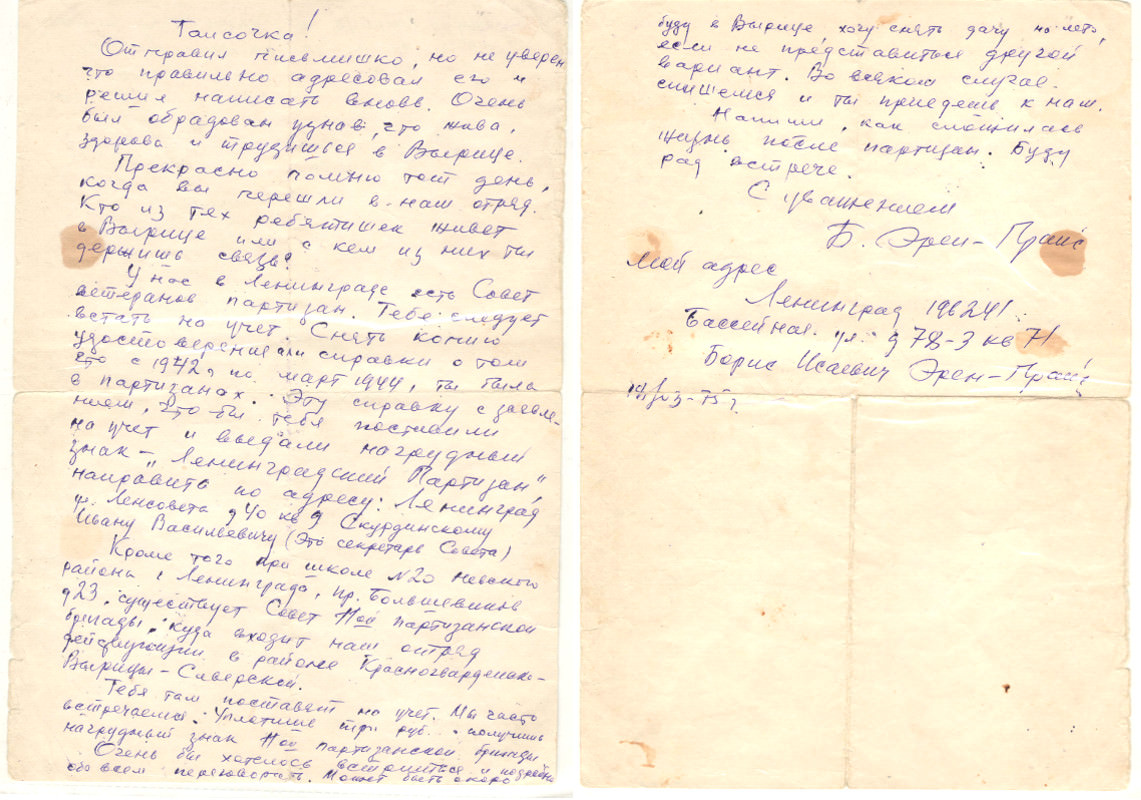 Таисочка!
Отправил письмишко, но не уверен
что правильно адресовал его и
решил написать вновь. Очень
был обрадован узнав, что жива,
здорова и трудишься в Вырице.
Прекрасно помню тот день,
когда вы перешли в наш отряд.
Кто из тех ребятишек живет
в Вырице или с кем из них ты
держишь связь?
У нас в Ленинграде есть Совет
ветеранов партизан. Тебе следует
встать на учет. Снять копию
удостоверения или справки о том
что с 1942 г по март 1944, ты была
в партизанах. Эту справку с заявле-
нием, что бы тебя поставили
на учет и выдали нагрудный
знак - "Ленинградский Партизан"
направить по адресу: Ленинград
ул. Ленсовета д 40 кв 9 Скурдинскому
Ивану Васильевичу (Это секретарь Совета)
Кроме того при школе N20 невского
района г Ленинграда, пр. Большевиков
д 23, существует Совет партизанской
бригады, куда входит наш отряд
действующий в районе Красногвардейск-
Вырицы-Сиверской.
Тебя там поставят на учет. Мы часто
встречаемся. Уплатишь три руб. и получишь
нагрудный знак партизанской бригады
Очень бы хотелось встретиться и подробно
обо всем переговорить. Может быть скоро
буду в Вырице хочу снять дачу на лето,
если не представиться другой
вариант. Во всяком случае
спишемся и ты приедешь к нам.
Напиши, как сложилась
жизнь после партизан. Буду
рад встрече.
С уважением
Б. Эрен-Прайс
Мой адрес
Ленинград 196241
Бассейная ул. д 78-3 кв 71
Борис Исаевич Эрен-Прайс
75 г.